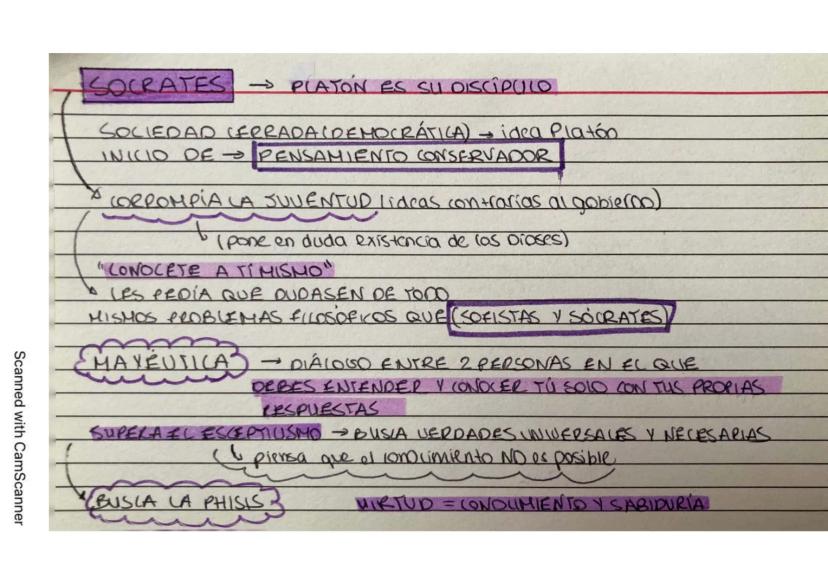 SÓCRATES → PLATÓN ES SU DISCÍPULO
SOCIEDAD CERRADA (DEMOCRÁTICA) → idea Platón
INICIO DE → PENSAMIENTO CONSERVADOR
CORROMPÍA LA JUVENTUD (ideas contrarias al gobierno)
(pone en duda existencia de los Dioses)
"CONOCETE A TÍ MISMO"
LES PEDÍA QUE DUDASEN DE TODO
MISMOS PROBLEMAS FILOSÓFICOS QUE (SOFISTAS Y SÓCRATES)
MAYÉUTICA → DIÁLOGO ENTRE 2 PERSONAS EN EL QUE
DEBES ENTENDER Y CONOCER TÚ SOLO CON TUS PROPIAS
RESPUESTAS
SUPERA EL ESCEPTICISMO → BUSCA VERDADES UNIVERSALES Y NECESARIAS
piensa que el conocimiento NO es posible
BUSCA LA PHISIS VIRTUD = CONOCIMIENTO Y SABIDURÍA
Scanned with CamScanner